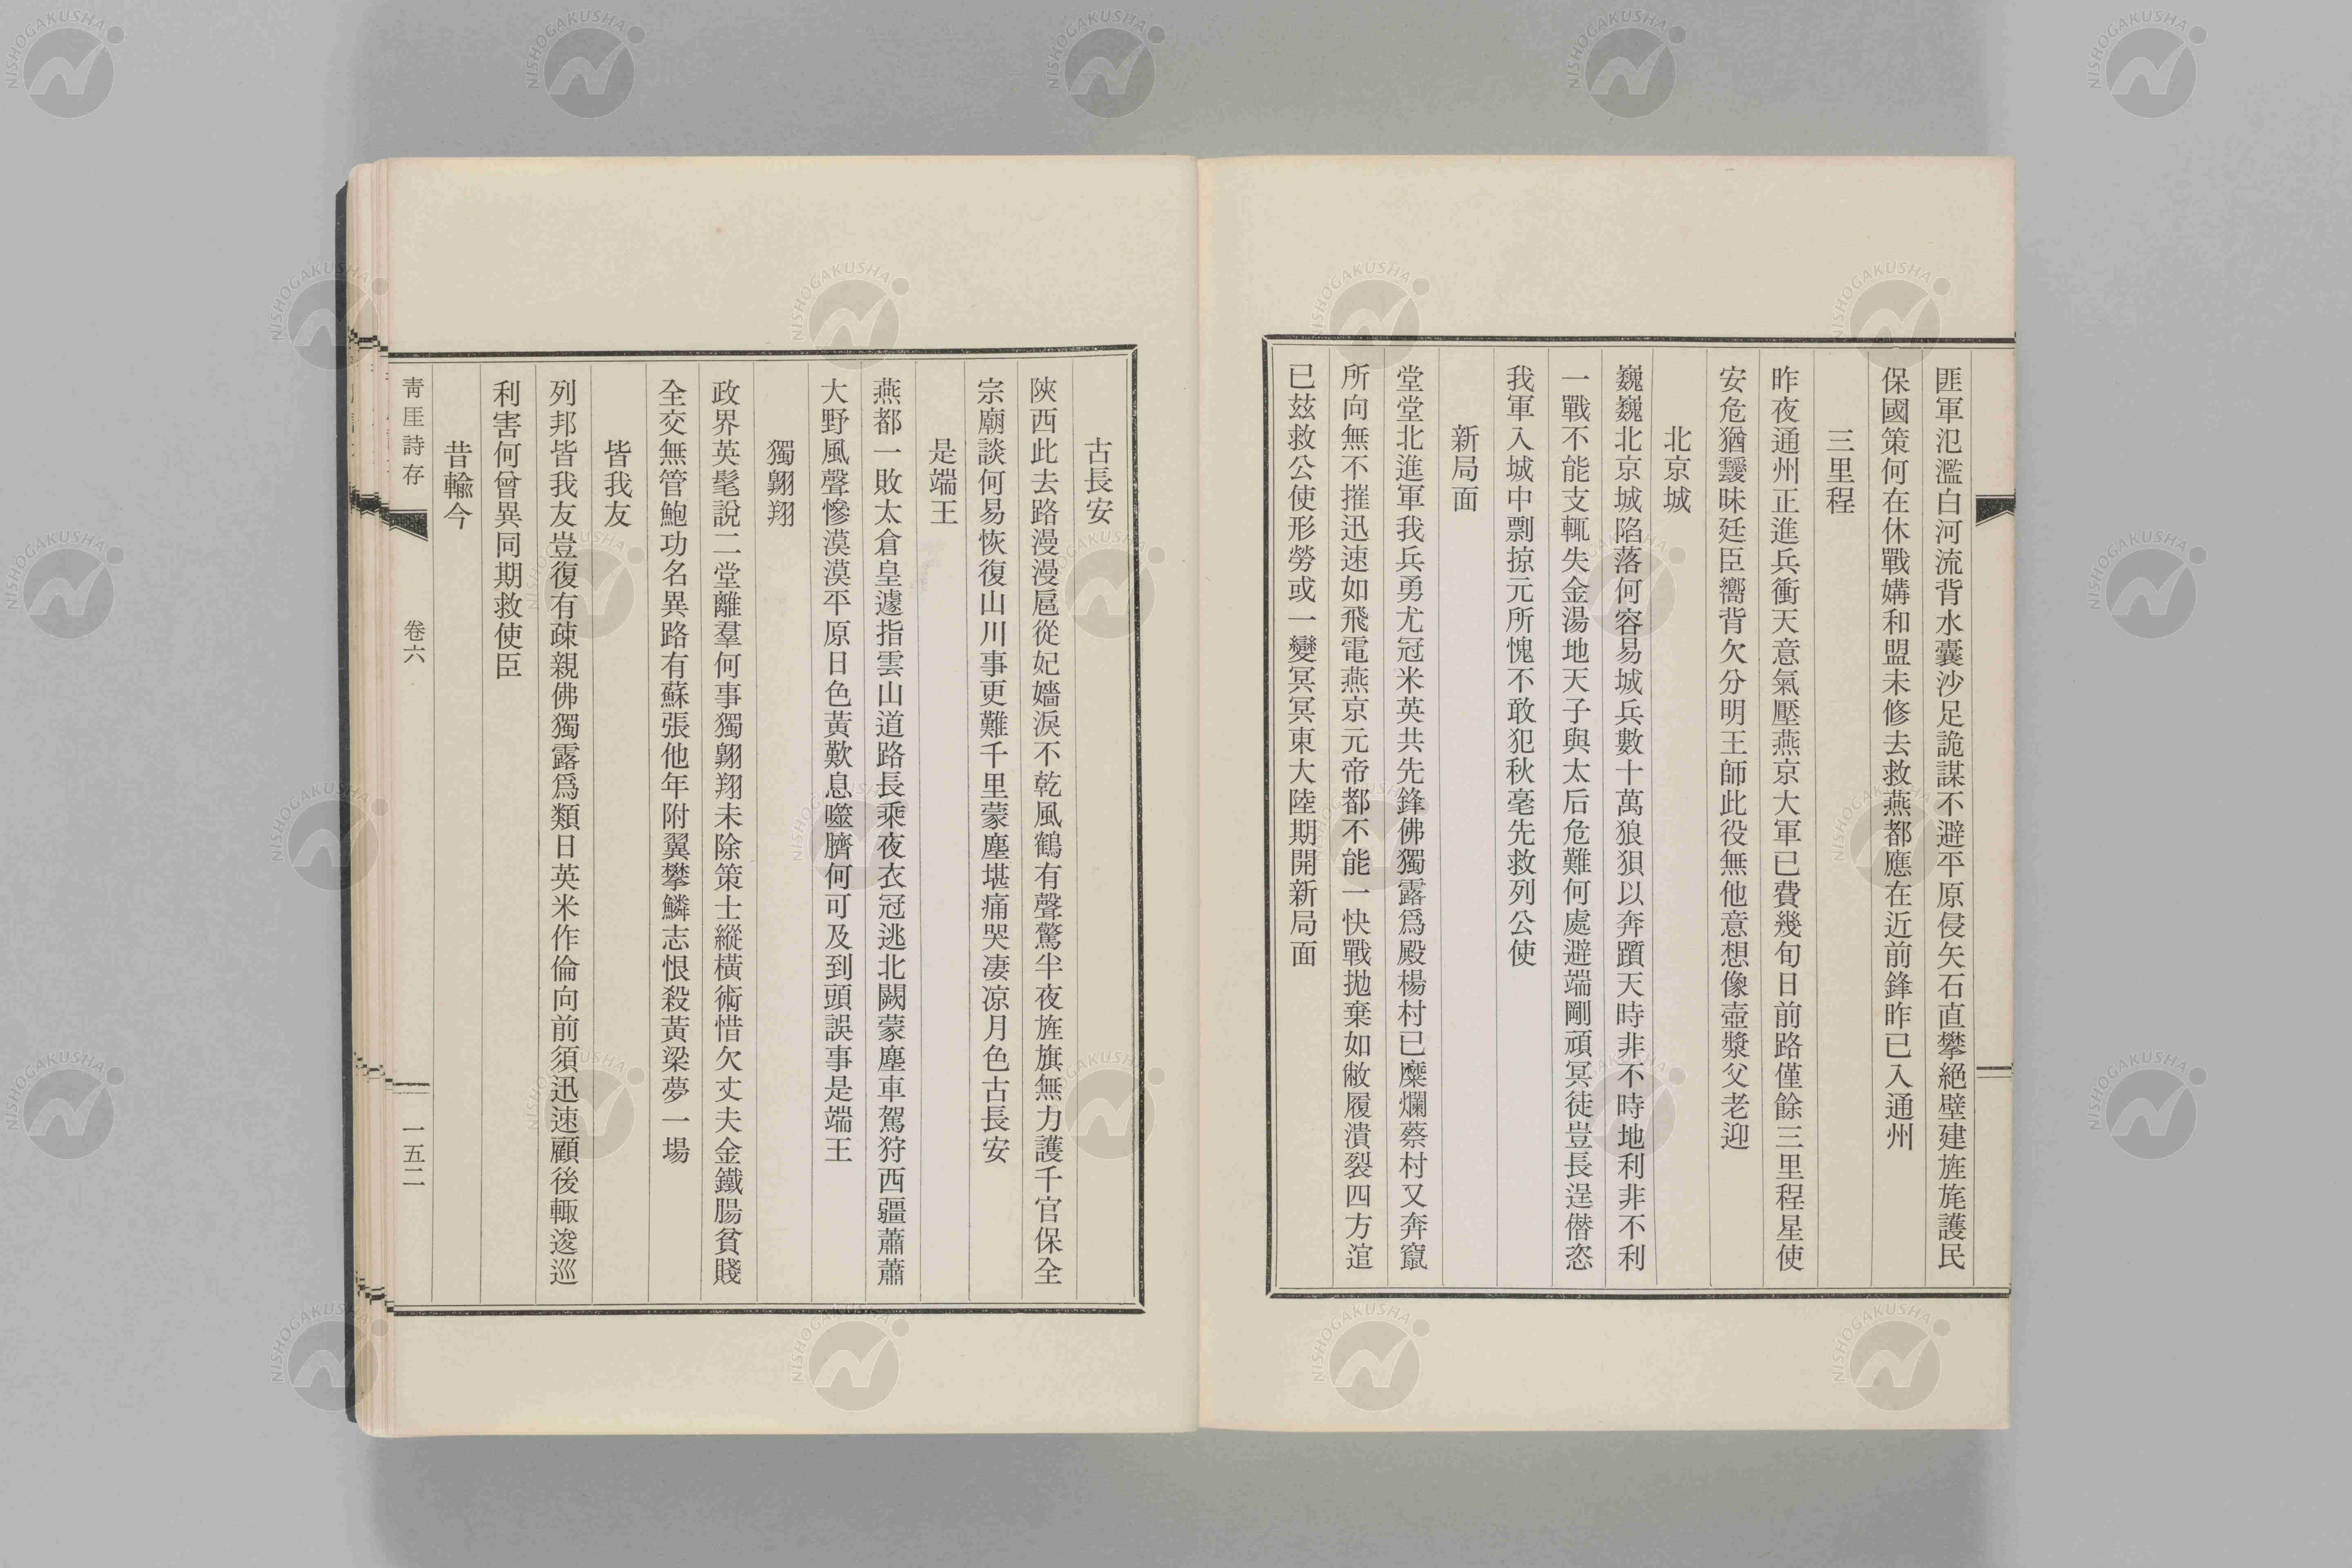 匪軍氾濫白河流背水囊沙足詭謀不避平原侵矢石直攀絕壁建旌旄護民
保國策何在休戰媾和盟未修去救燕都應在近前鋒昨已入通州
三里程
昨夜通州正進兵衝天意氣壓燕京大軍已費幾旬日前路僅餘三里程星使
安危猶靉昧廷臣嚮背欠分明王師此役無他意想像壺漿父老迎
北京城
巍巍北京城陷落何容易城兵數十萬狼狽以奔躓天時非不時地利非不利
一戰不能支輒失金湯地天子與太后危難何處避端剛頑冥徒豈長逞僭恣
我軍入城中剽掠元所愧不敢犯秋毫先救列公使
新局面
堂堂北進軍我兵勇尤冠米英共先鋒佛獨露爲殿楊村已糜爛蔡村又奔竄
所向無不摧迅速如飛電燕京元帝都不能一快戰拋棄如敝履潰裂四方逭
已玆救公使形勞或一變冥冥東大陸期開新局面
古長安
陝西此去路漫漫扈從妃嬙淚不乾風鶴有聲驚半夜旌旗無力護千官保全
宗廟談何易恢復山川事更難千里蒙塵堪痛哭凄凉月色古長安
是端王
燕都一敗太倉皇遽指雲山道路長乘夜衣冠逃北闕蒙塵車駕狩西疆蕭蕭
大野風聲慘漠漠平原日色黃歎息噬臍何可及到頭誤事是端王
獨翺翔
政界英髦說二堂離羣何事獨翺翔未除策士縱橫術惜欠丈夫金鐵腸貧賤
全交無管鮑功名異路有蘇張他年附翼攀鱗志恨殺黃梁夢一場
皆我友
列邦皆我友豈復有疎親佛獨露爲類日英米作倫向前須迅速顧後輙逡巡
利害何曾異同期救使臣
昔輸今
靑厓詩存
卷六
一五二
NISHOGAKUSHA